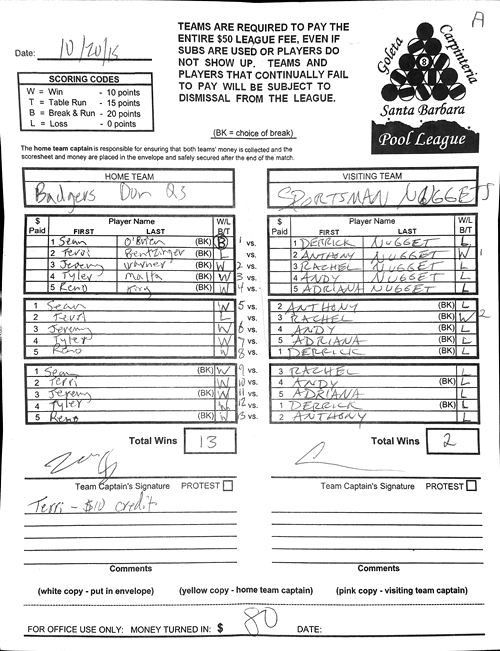 A
Date: 10/20/15
TEAMS ARE REQUIRED TO PAY THE
ENTIRE $50 LEAGUE FEE, EVEN IF
SUBS ARE USED OR PLAYERS DO
NOT SHOW UP. TEAMS AND
PLAYERS THAT CONTINUALLY FAIL
TO PAY WILL BE SUBJECT TO
DISMISSAL FROM THE LEAGUE.
SCORING CODES
W = Win - 10 points
T = Table Run - 15 points
B = Break & Run - 20 points
L = Loss - 0 points
(BK = choice of break)
Goleta
Carpinteria
8
Santa Barbara
Pool League
The home team captain is responsible for ensuring that both teams' money is collected and the
scoresheet and money are placed in the envelope and safely secured after the end of the match.
HOME TEAM
Badgers Don Q3
VISITING TEAM
SPORTSMAN NUGGETS
$ Paid Player Name FIRST LAST W/L B/T
1 Sean O'Brien (BK) B 1 vs.
2 Terri Bentzinger (BK) L vs.
3 Jeremy (BK) W 2 vs.
4 Tyler Malta (BK) W 3 vs.
5 Reno King (BK) W 4 vs.
$ Paid Player Name FIRST LAST W/L B/T
1 DERRICK NUGGET L
2 ANTHONY NUGGET W 1
3 RACHEL NUGGET L
4 ANDY NUGGET L
5 ADRIANA NUGGET L
1 Sean W 5 vs.
2 Terri L vs.
3 Jeremy W 6 vs.
4 Tyler W 7 vs.
5 Reno W 8 vs.
2 ANTHONY (BK) L
3 RACHEL (BK) W 2
4 ANDY (BK) L
5 ADRIANA (BK) L
1 DERRICK (BK) L
1 Sean (BK) W 9 vs.
2 Terri W 10 vs.
3 Jeremy (BK) W 11 vs.
4 Tyler W 12 vs.
5 Reno (BK) W 13 vs.
3 RACHEL L
4 ANDY (BK) L
5 ADRIANA L
1 DERRICK (BK) L
2 ANTHONY L
Total Wins 13
Total Wins 2
Team Captain's Signature PROTEST
Team Captain's Signature PROTEST
Terri - $10 credit
Comments
Comments
(white copy - put in envelope) (yellow copy - home team captain) (pink copy - visiting team captain)
FOR OFFICE USE ONLY: MONEY TURNED IN: $ 80 DATE: